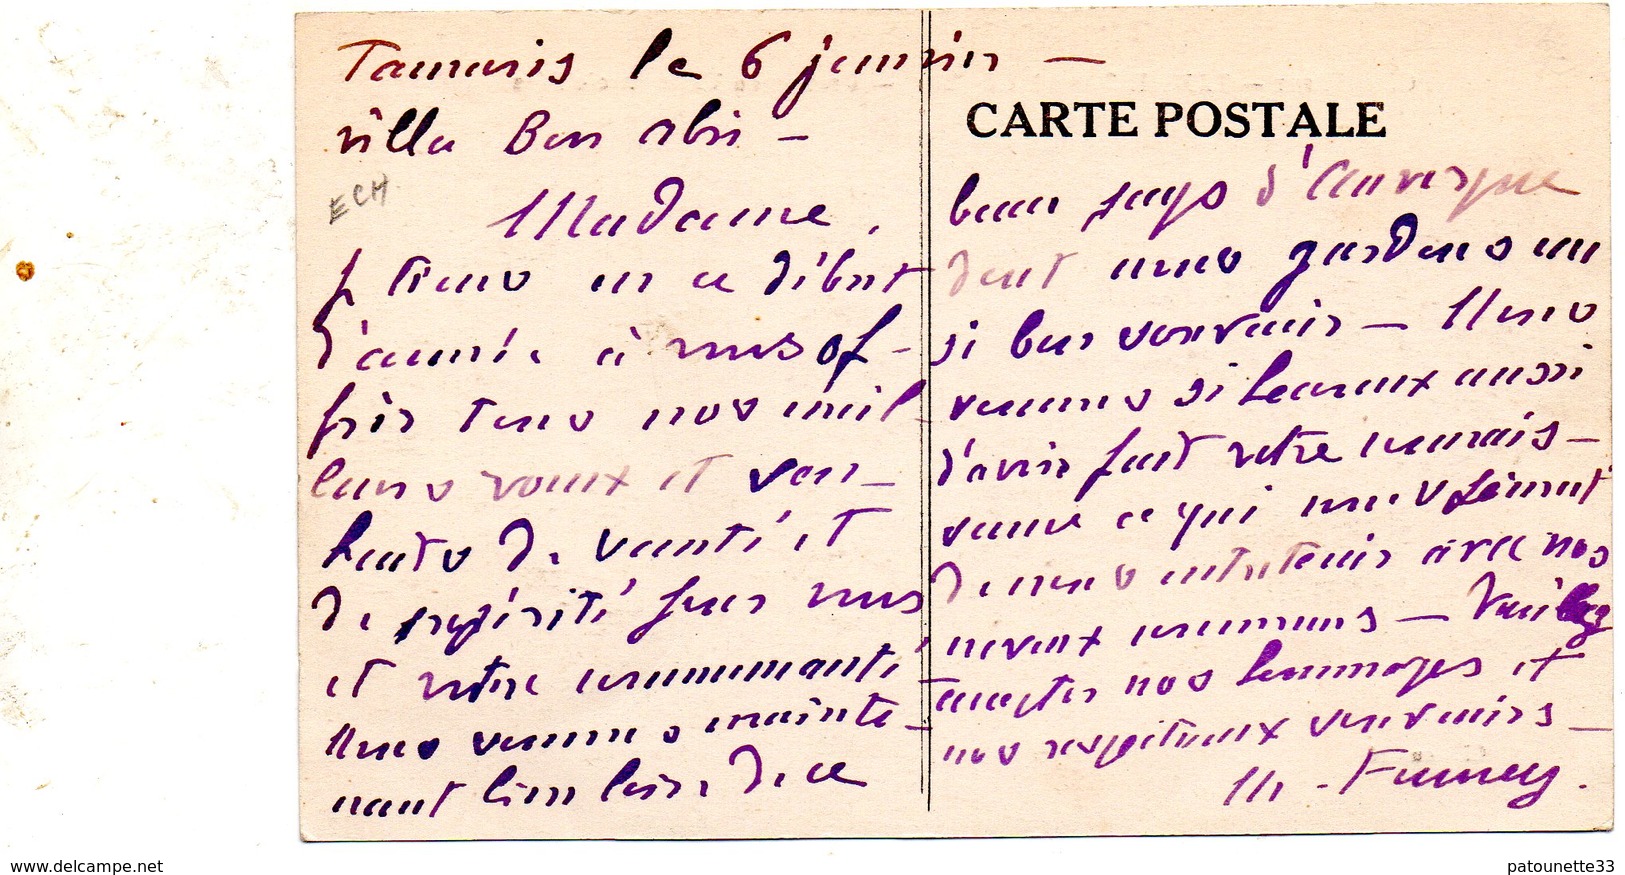 Tamaris le 6 janvier —
villa Bon abri —
ECH
Madame,
Je tiens en ce début
d'année à vous of-
frir tous nos meil-
leurs vœux et sou-
haits de santé et
de prospérité pour vous
et votre communauté
Nous sommes mainte-
nant bien loin de ce
CARTE POSTALE
beau pays d'Auvergne
dont nous gardons un
si bon souvenir — Nous
sommes si heureux aussi
d'avoir fait votre connais-
sance ce qui nous permet
de nous entretenir avec nos
neveux communs — Veuillez
accepter nos hommages et
nos respectueux souvenirs —
M. Fumey.
www.delcampe.net
patounette33